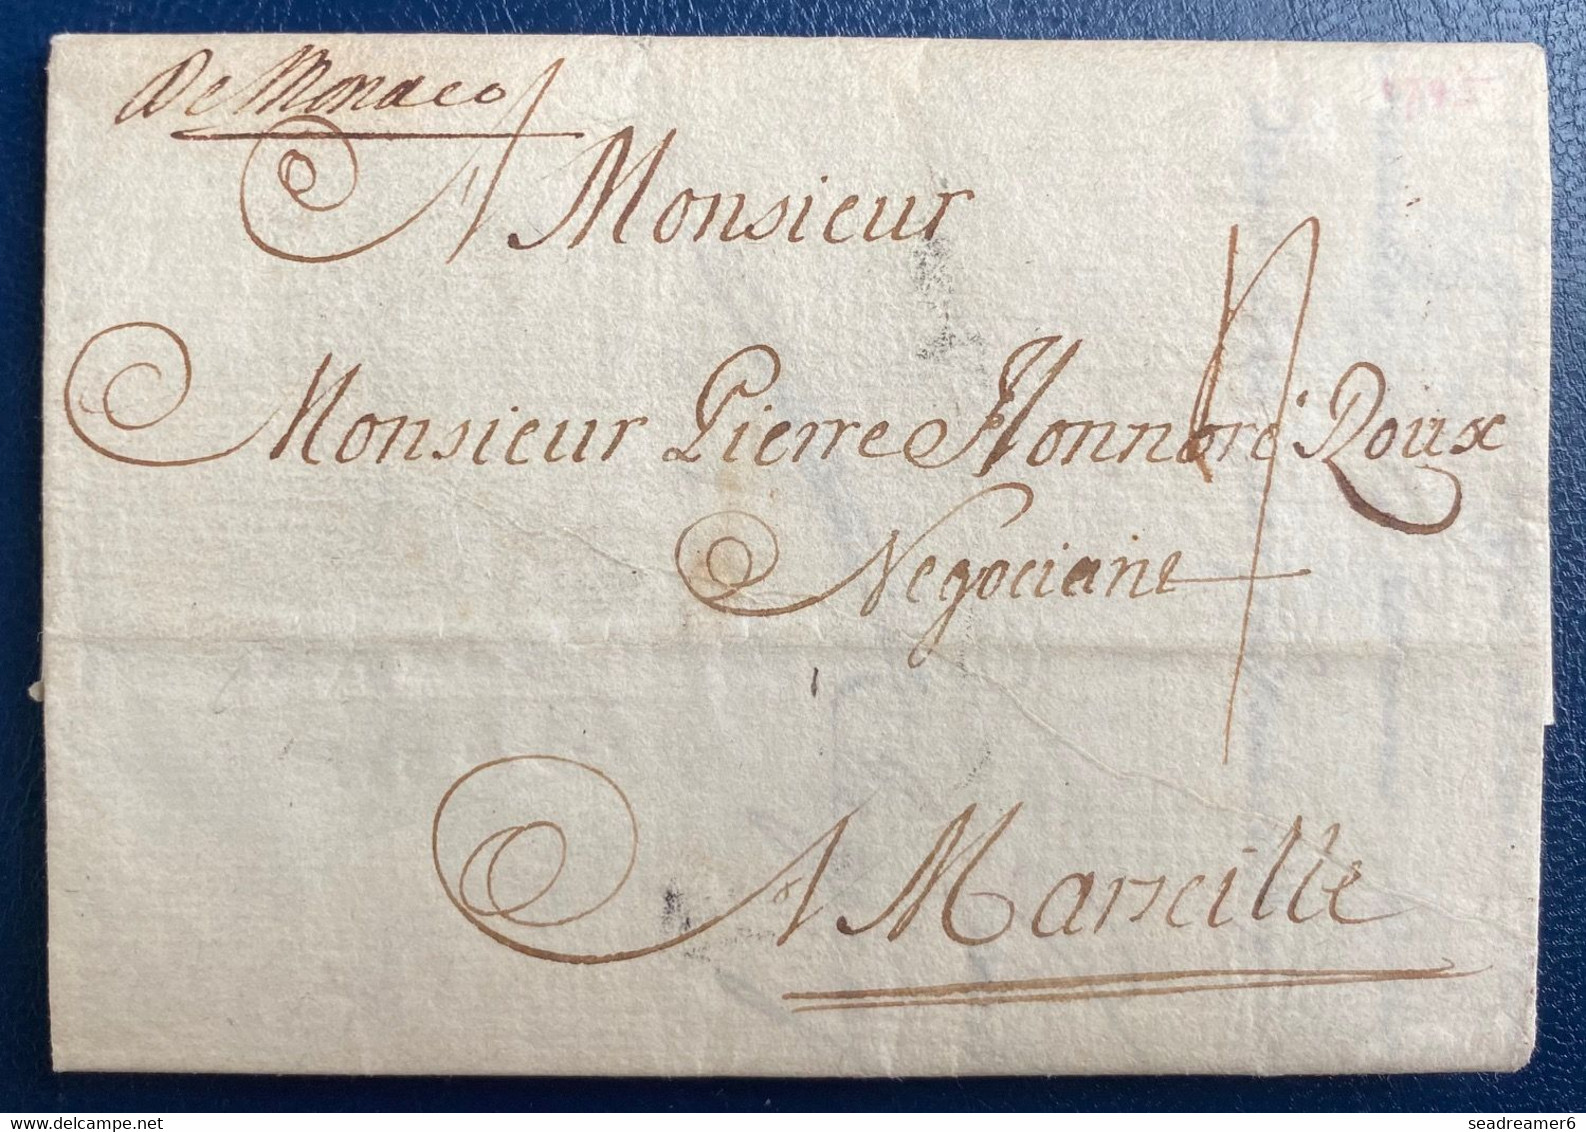 De Monaco
A Monsieur
Monsieur Pierre Honnoré Roux
Negociant
A Marseille
seadreamer6